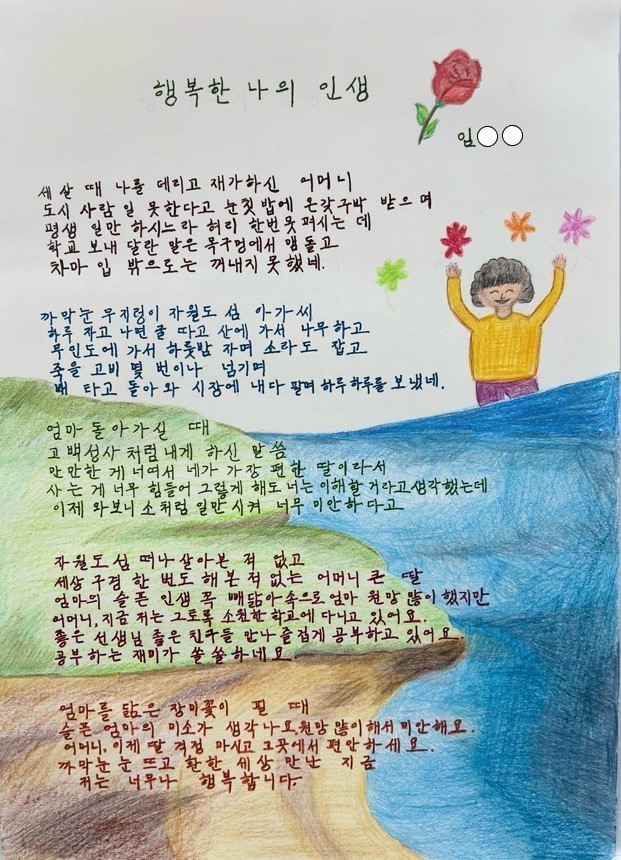 행복한 나의 인생
임○○
세 살 때 나를 데리고 재가하신 어머니
도시 사람 일 못한다고 눈칫밥에 온갖구박 받으며
평생 일만 하시느라 허리 한번못펴시는 데
학교 보내 달란 말은 목구멍에서 맴돌고
차마 입 밖으로는 꺼내지 못했네.
까막눈 무지렁이 자월도 섬 아가씨
하루 자고 나면 굴 따고 산에 가서 나무하고
무인도에 가서 하룻밤 자며 소라도 잡고
죽을 고비 몇 번이나 넘기며
배 타고 돌아와 시장에 내다 팔며 하루하루를 보냈네.
엄마 돌아가실 때
고백성사 처럼 내게 하신 말씀
만만한 게 너여서 네가 가장 편한 딸이라서
사는 게 너무 힘들어 그렇게 해도 너는 이해할 거라고 생각했는데
이제 와보니 소처럼 일만 시켜 너무 미안하다고
자월도 섬 떠나 살아본 적 없고
세상 구경 한 번도 해 본 적 없는 어머니 큰 딸
엄마의 슬픈 인생 꼭 빼닮아 속으로 엄마 원망 많이 했지만
어머니, 지금 저는 그토록 소원한 학교에 다니고 있어요.
좋은 선생님 좋은 친구들 만나 즐겁게 공부하고 있어요.
공부하는 재미가 쏠쏠하네요.
엄마를 닮은 장미꽃이 필 때
슬픈 엄마의 미소가 생각나요.원망 많이해서 미안해요.
어머니, 이제 딸 걱정 마시고 그곳에서 편안하세요.
까막눈 눈 뜨고 환한 세상 만난 지금
저는 너무나 행복합니다.